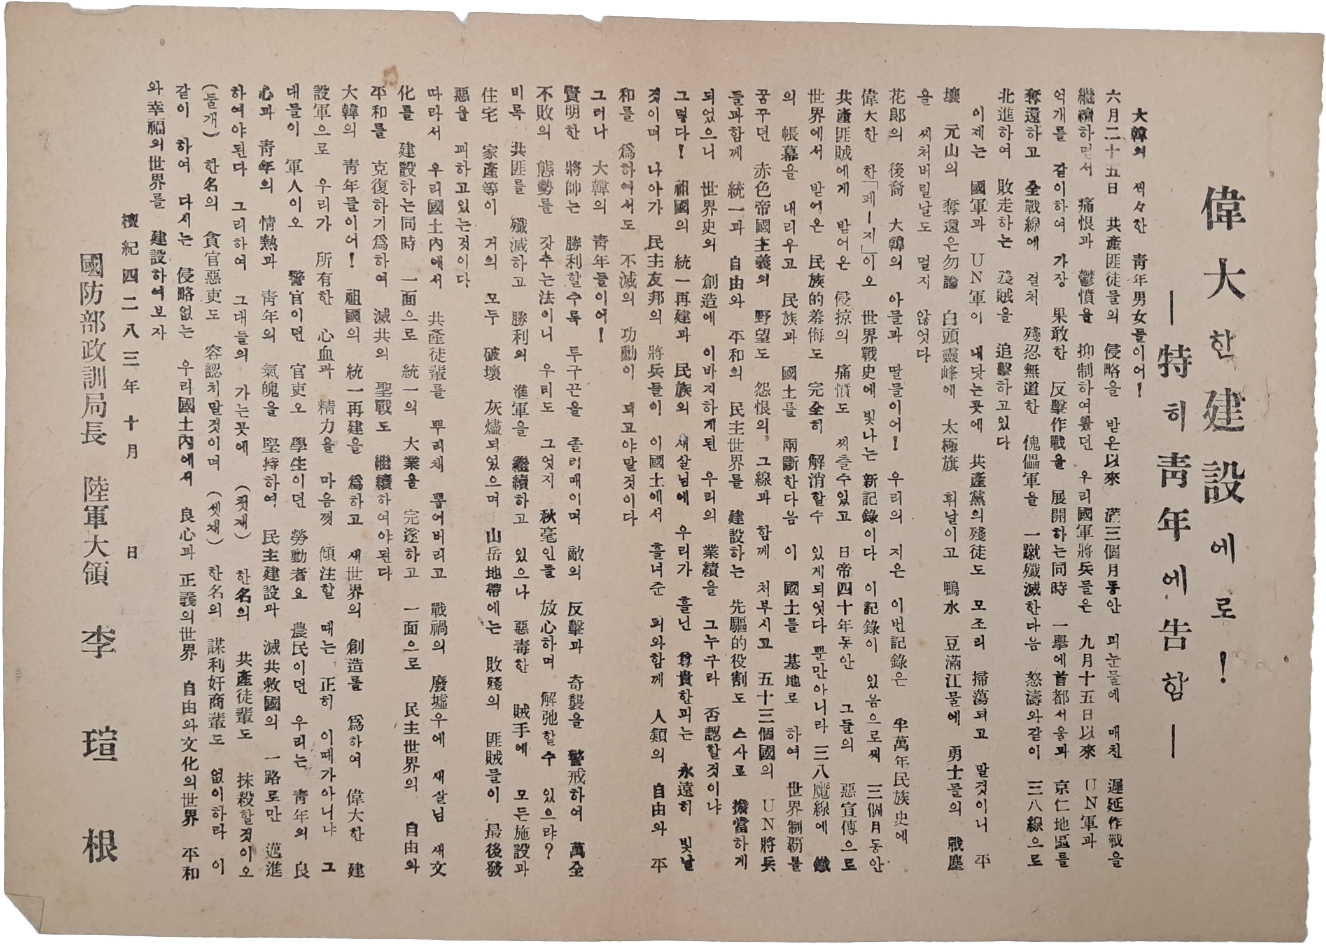 偉大한建設에로!
―特히靑年에告함―
大韓의 씩々한 靑年男女들이어!
六月二十五日 共產匪徒들의 侵略을 받은以來 滿三個月동안 피눈물에 매친 遲延作戰을
繼續하면서 痛恨과 鬱憤을 抑制하여왔던 우리國軍將兵들은 九月十五日以來 UN軍과
억개를 같이하여 가장 果敢한 反擊作戰을 展開하는同時 一擧에首都서울과 京仁地區를
奪還하고 全戰線에 걸처 殘忍無道한 傀儡軍을 一蹴殲滅한다음 怒濤와같이 三八線으로
北進하여 敗走하는 殘賊을 追擊하고있다
이제는 國軍과 UN軍이 내닷는곳에 共產黨의殘徒도 모조리 掃蕩되고 말것이니 平
壤 元山의 奪還은勿論 白頭靈峰에 太極旗 휘날이고 鴨水 豆滿江물에 勇士들의 戰塵
을 씨처버릴날도 멀지 않엇다
花郞의 後裔 大韓의 아들과 딸들이어! 우리의 지은 이번記錄은 半萬年民族史에
偉大한 한「페―지」이오 世界戰史에 빛나는 新記錄이다 이記錄이 있음으로써 三個月동안
共產匪賊에게 받어온 侵掠의 痛憤도 씨츨수있고 日帝四十年동안 그들의 惡宣傳으로
世界에서 받어온 民族的羞侮도 完全히 解消할수 있게되엿다 뿐만아니라 三八魔線에 鐵
의 帳幕을 내리우고 民族과 國土를 兩斷한다음 이 國土를 基地로 하여 世界制覇를
꿈꾸던 赤色帝國主義의 野望도 怨恨의 그線과 함께 처부시고 五十三個國의 UN將兵
들과함께 統一과 自由와 平和의 民主世界를 建設하는 先驅的役割도 스사로 擔當하게
되었으니 世界史의 創造에 이바지하게된 우리의 業績을 그누구라 否認할것이냐
그렇다! 祖國의 統一再建과 民族의 새살님에 우리가 흘닌 尊貴한피는 永遠히 빛날
것이며 나아가 民主友邦의 將兵들이 이國土에서 흘녀준 피와함께 人類의 自由와 平
和를 爲하여서도 不滅의 功勳이 되고야말것이다
그러나 大韓의 靑年들이어!
賢明한 將帥는 勝利할수록 투구끈을 졸리매이며 敵의 反擊과 奇襲을 警戒하여 萬全
不敗의 態勢를 갓추는法이니 우리도 그엇지 秋毫인들 放心하며 解弛할수 있으랴?
비록 共匪를 殲滅하고 勝利의 進軍을 繼續하고 있으나 惡毒한 賊手에 모든施設과
住宅 家產等이 거의 모두 破壞 灰燼되었으며 山岳地帶에는 敗殘의 匪賊들이 最後發
惡을 피하고있는것이다
따라서 우리國土內에서 共產徒輩를 뿌리채 뽑어버리고 戰禍의 廢墟우에 새살님 새文
化를 建設하는同時 一面으로 統一의 大業을 完遂하고 一面으로 民主世界의 自由와
平和를 克復하기爲하여 滅共의 聖戰도 繼續하여야된다
大韓의 靑年들이어! 祖國의 統一再建을 爲하고 새世界의 創造를 爲하여 偉大한 建
設軍으로 우리가 所有한 心血과 精力을 마음껏 傾注할 때는 正히 이때가아니냐 그
대들이 軍人이오 警官이던 官吏오 學生이던 勞動者요 農民이던 우리는 靑年의 良
心과 靑年의 情熱과 靑年의 氣魄을 堅持하여 民主建設과 滅共救國의 一路로만 邁進
하여야된다 그리하여 그대들의 가는곳에 (첫재) 한名의 共產徒輩도 抹殺할것이오
(둘개) 한名의 貪官惡吏도 容認치말것이며 (셋재) 한名의 謀利奸商輩도 없이하라 이
같이 하여 다시는 侵略없는 우리國土內에서 良心과 正義의世界 自由와文化의世界 平和
와幸福의世界를 建設하여보자
檀紀四二八三年 十月 日
國防部政訓局長 陸軍大領 李瑄根